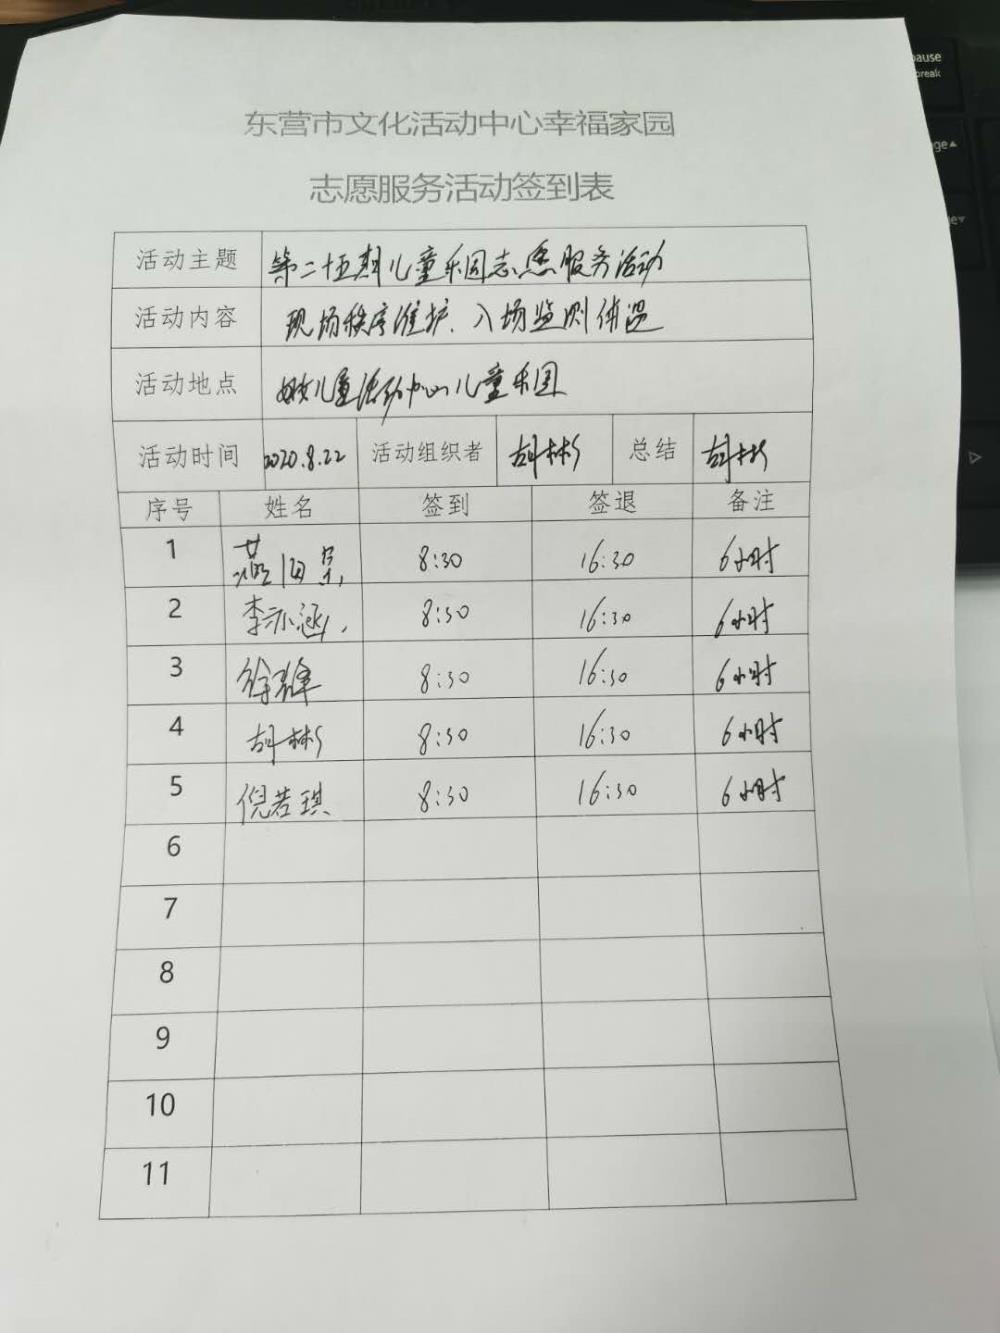 pause
break
东营市文化活动中心幸福家园
志愿服务活动签到表
活动主题 第二十五期儿童乐园志愿服务活动
活动内容 现场秩序维护、入场监测体温
活动地点 妇女儿童活动中心儿童乐园
活动时间 2020.8.22 活动组织者 胡彬 总结 胡彬
序号 姓名 签到 签退 备注
1 8:30 16:30 6小时
2 李亦涵 8:30 16:30 6小时
3 8:30 16:30 6小时
4 胡彬 8:30 16:30 6小时
5 倪若琪 8:30 16:30 6小时
6
7
8
9
10
11